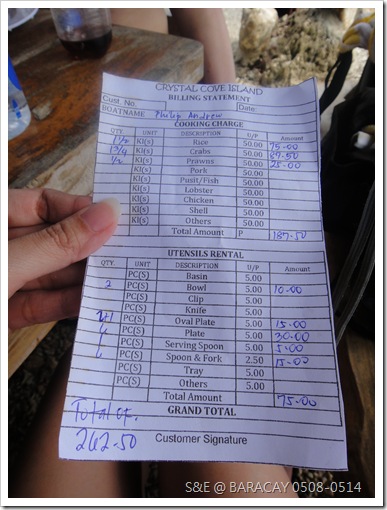 CRYSTAL COVE ISLAND
BILLING STATEMENT
Cust. No. Date:
BOATNAME Philip Andrew
COOKING CHARGE
QTY. UNIT DESCRIPTION U/P Amount
1 1/2 Kl(s) Rice 50.00 75.00
1 3/4 Kl(s) Crabs 50.00 87.50
1/2 Kl(s) Prawns 50.00 25.00
Kl(s) Pork 50.00
Kl(s) Pusit/Fish 50.00
Kl(s) Lobster 50.00
Kl(s) Chicken 50.00
Kl(s) Shell 50.00
Kl(s) Others 50.00
Total Amount P 187.50
UTENSILS RENTAL
QTY. UNIT DESCRIPTION U/P Amount
PC(S) Basin 5.00
2 PC(S) Bowl 5.00 10.00
PC(S) Clip 5.00
PC(S) Knife 5.00
PC(S) Oval Plate 5.00 15.00
6 PC(S) Plate 5.00 30.00
PC(S) Serving Spoon 5.00 5.00
6 PC(S) Spoon & Fork 2.50 15.00
PC(S) Tray 5.00
PC(S) Others 5.00
Total Amount 75.00
GRAND TOTAL
Total of.
262.50 Customer Signature
S&E @ BARACAY 0508-0514